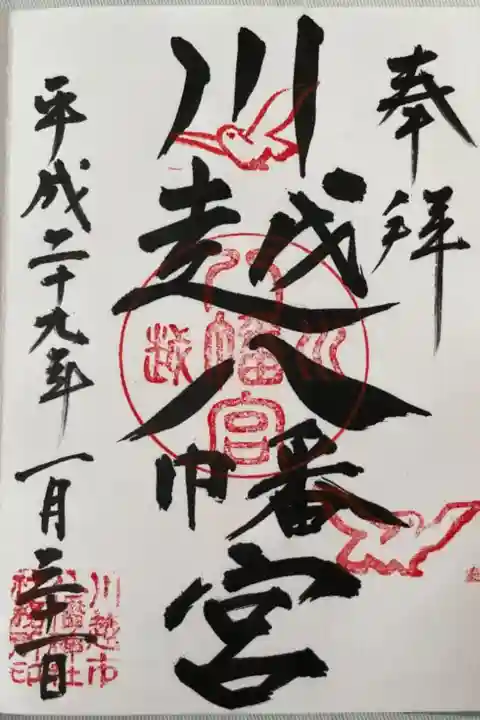 奉拝
川越八幡宮
川越
八幡宮
平成二十九年一月二十一日
川越市